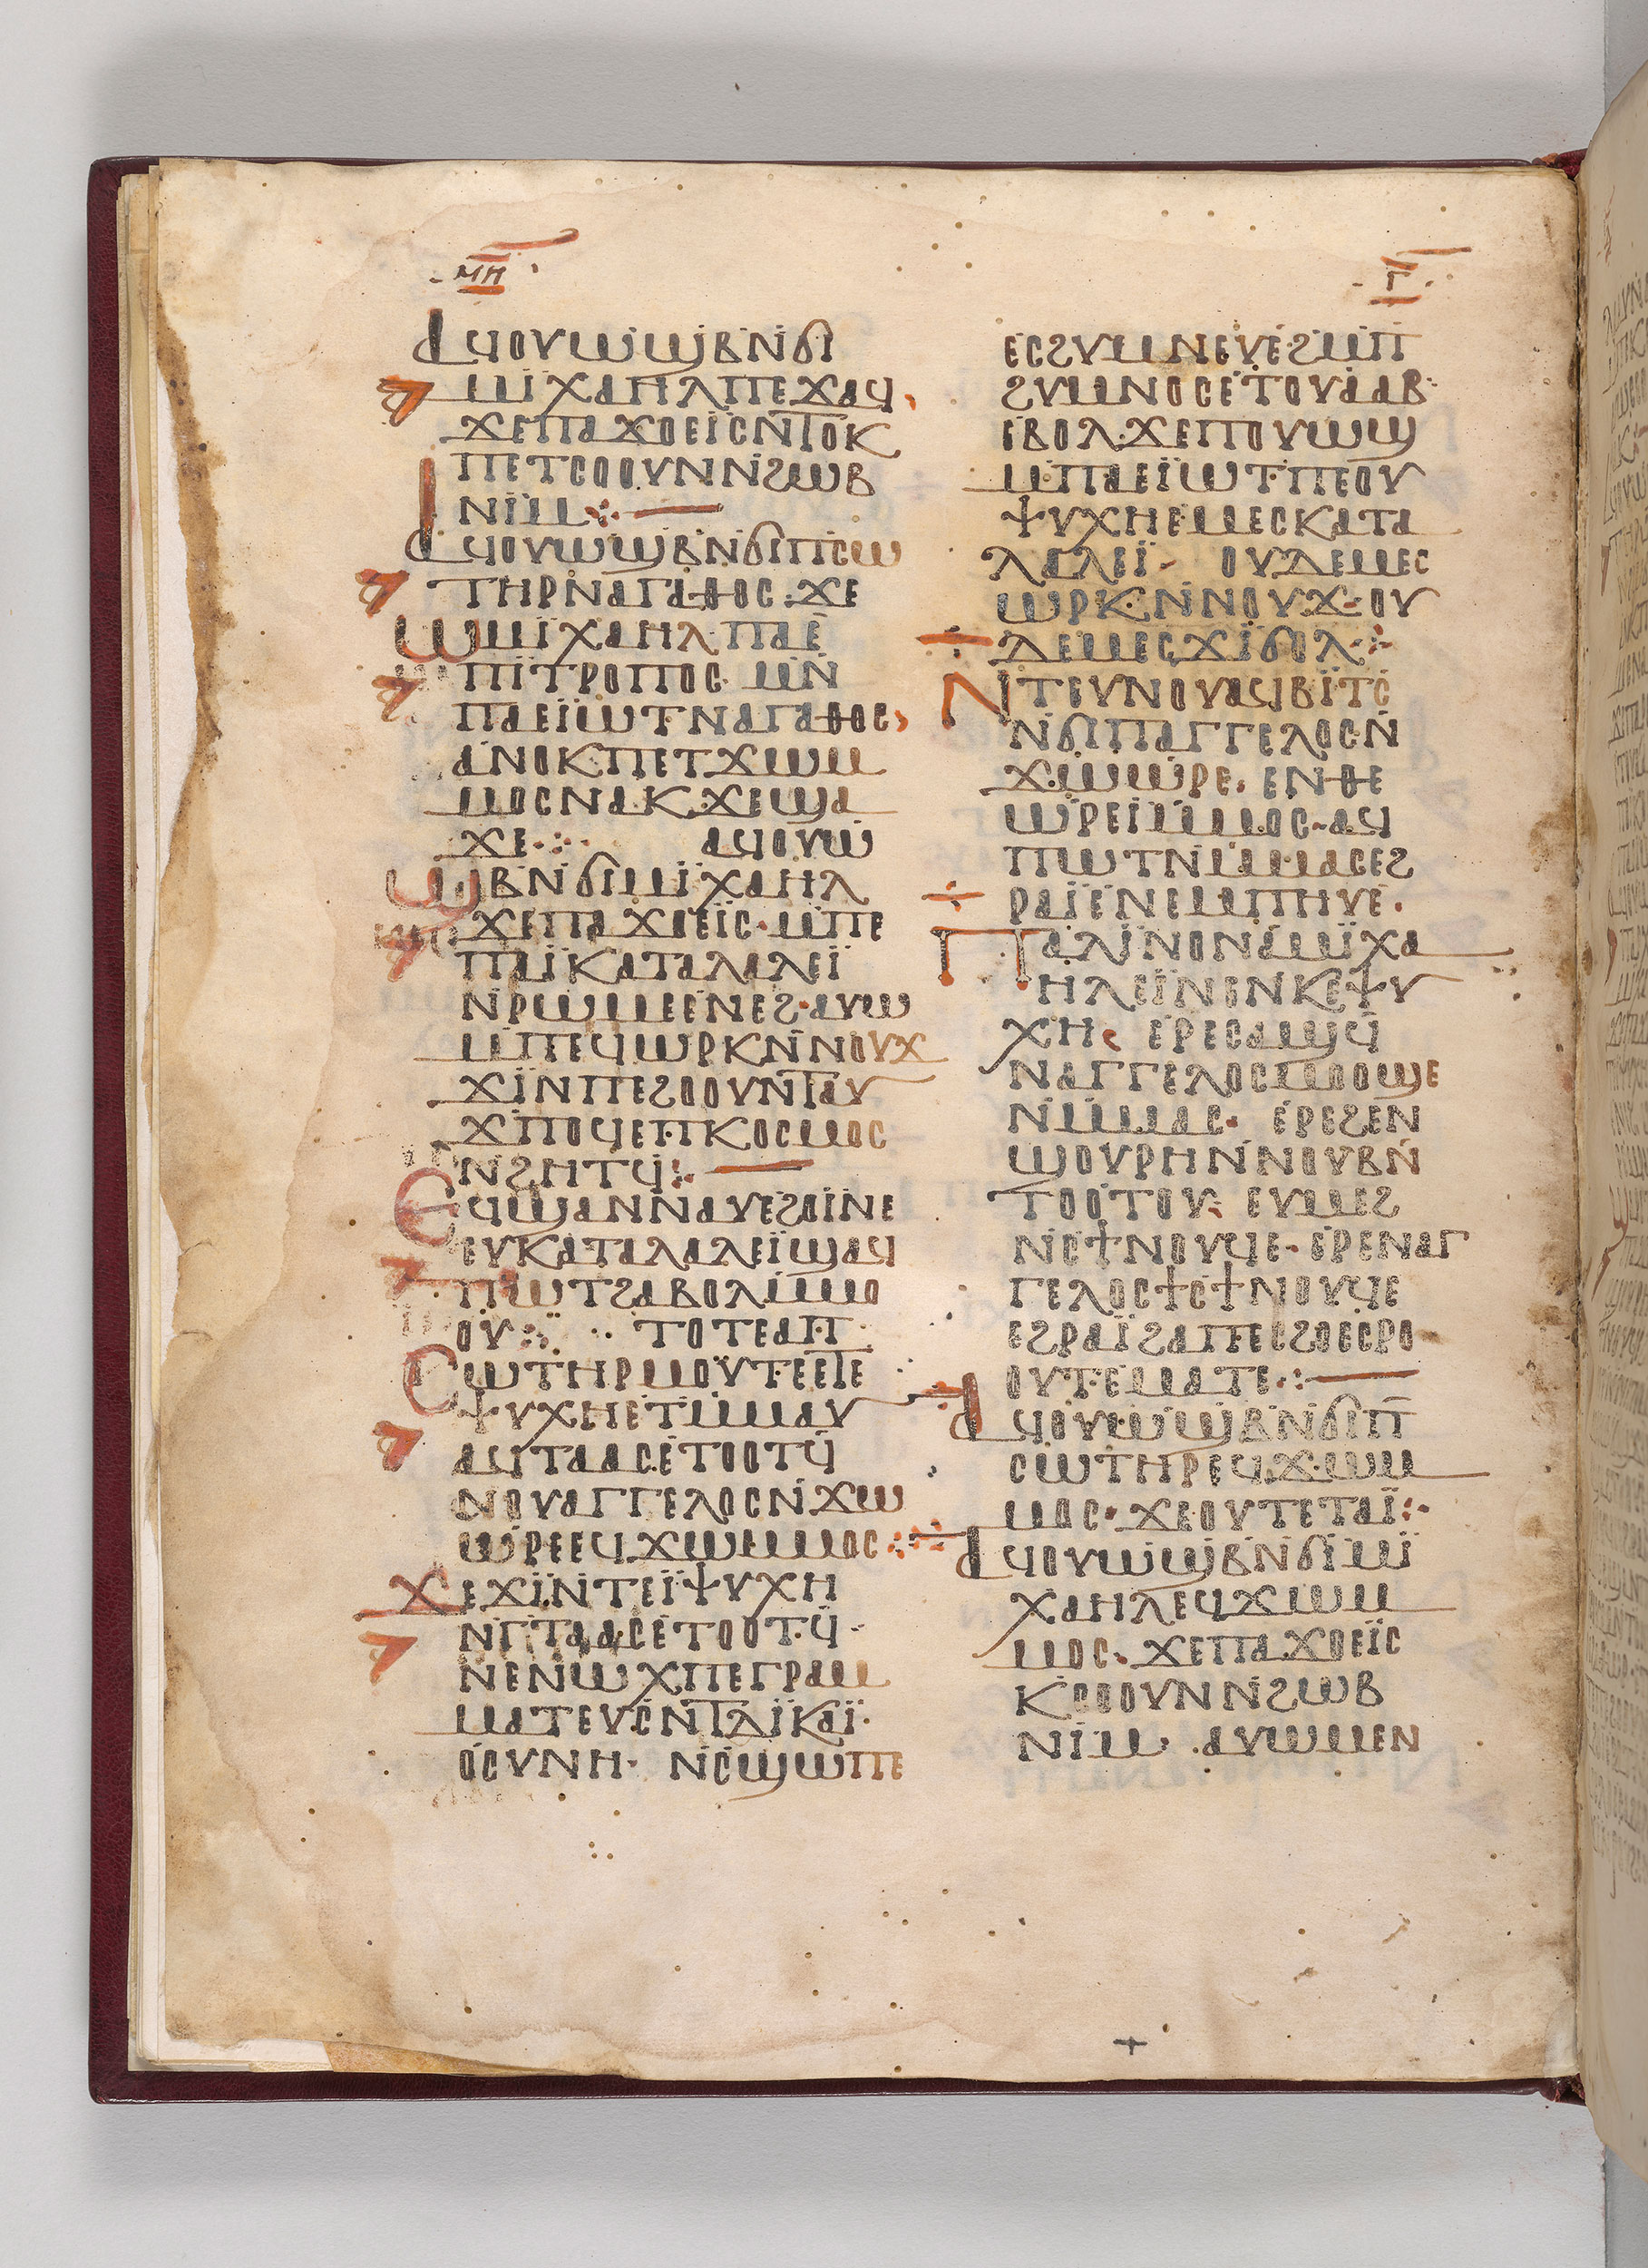 ⲙⲏ
ⲅ
ⲁϥⲟⲩⲱϣⲃ̄ⲛ̄ϭⲓ
ⲙⲓⲭⲁⲏⲗⲡⲉϫⲁϥ
ϫⲉⲡⲁϫⲟⲉⲓⲥⲛ̄ⲧⲟⲕ
ⲡⲉⲧⲥⲟⲟⲩⲛⲛ̄ϩⲱⲃ
ⲛⲓⲙ
ⲁϥⲟⲩⲱϣⲃ̄ⲛ̄ϭⲓⲡⲥⲱ
ⲧⲏⲣⲛ̄ⲁⲅⲁⲑⲟⲥ·ϫⲉ
ⲱⲙⲓⲭⲁⲏⲗ·ⲡⲁⲉ
ⲡⲓⲧⲣⲟⲡⲟⲥ ⲙⲛ̄
ⲡⲁⲉⲓⲱⲧⲛ̄ⲁⲅⲁⲑⲟⲥ
ⲁⲛⲟⲕⲡⲉⲧϫⲱⲙ
ⲙⲟⲥⲛⲁⲕ·ϫⲉϣⲁ
ϫⲉ· ⲁϥⲟⲩⲱ
ϣⲃ̄ⲛ̄ϭⲓⲙⲓⲭⲁⲏⲗ
ϫⲉⲡⲁϫⲟⲉⲓⲥ·ⲙ̄ⲡⲉ
ⲡⲁⲓ̈ⲕⲁⲧⲁⲗⲁⲗⲉⲓ̈
ⲛ̄ⲣⲱⲙⲉⲉⲛⲉϩ·ⲁⲩⲱ
ⲙ̄ⲡⲉϥⲱⲣⲕⲛ̄ⲛⲟⲩϫ
ϫⲓⲛⲡⲉϩⲟⲟⲩⲛ̄ⲧⲁⲩ
ϫⲡⲟϥⲉⲡⲕⲟⲥⲙⲟⲥ
ⲛ̄ϩⲏⲧϥ̄
ⲉϥϣⲁⲛⲛⲁⲩⲉϩⲟⲓ̈ⲛⲉ
ⲉⲩⲕⲁⲧⲁⲗⲁⲗⲉⲓ̈ϣⲁϥ
ⲡⲱⲧϩⲁⲃⲟⲗⲙ̄ⲙⲟ
ⲟⲩ ⲧⲟⲧⲉⲁⲡ
ⲥⲱⲧⲏⲣⲙⲟⲩⲧⲉⲉⲧⲉ
ⲯⲩⲭⲏⲉⲧⲙ̄ⲙⲁⲩ
ⲁϥⲧⲁⲁⲥⲉⲧⲟⲟⲧϥ̄
ⲛⲟⲩⲁⲅⲅⲉⲗⲟⲥⲛ̄ϫⲱ
ⲱⲣⲉⲉϥϫⲱⲙⲙⲟⲥ
ϫⲉϫⲓⲛ̄ⲧⲉⲓ̈ⲯⲩⲭⲏ
ⲛⲅ̄ⲧⲁⲁⲥⲉⲧⲟⲟⲧϥ̄
ⲛⲉⲛⲱⲭⲡⲉⲅⲣⲁⲙ
ⲙⲁⲧⲉⲩⲥⲛ̄ⲧⲇⲓⲕⲁⲓ̈
ⲟⲥⲩⲛⲏ· ⲛⲥ̄ϣⲱⲡⲉ
ⲉⲥϩⲩⲙⲛⲉⲩⲉ·ϩⲙ̄ⲡ
ϩⲩⲙⲛⲟⲥⲉⲧⲟⲩⲁⲁⲃ
ⲉⲃⲟⲗ·ϫⲉⲡⲟⲩⲱϣ
ⲙ̄ⲡⲁⲉⲓ̈ⲱⲧ·ⲡⲉⲟⲩ
ⲯⲩⲭⲏⲉⲙⲉⲥⲕⲁⲧⲁ
ⲗⲁⲗⲉⲓ̈ ⲟⲩⲇⲉⲙⲉⲥ
ⲱⲣⲕ·ⲛ̄ⲛⲟⲩϫ·ⲟⲩ
ⲇⲉⲙⲉⲥϫⲓϭⲟⲗ
ⲛ̄ⲧⲉⲩⲛⲟⲩⲁϥϥⲓⲧⲥ̄
ⲛ̄ϭⲓⲡⲁⲅⲅⲉⲗⲟⲥⲛ̄
ϫⲱⲱⲣⲉ· ⲉⲛⲑⲉ
ⲱⲣⲉⲓⲙ̄ⲙⲟⲥ·ⲁϥ
ⲡⲱⲧⲛⲙ̄ⲙⲁⲥⲉϩ
ⲣⲁⲓ̈ⲉⲛⲉⲙⲡⲏⲩⲉ·
ⲡⲁⲗⲓⲛⲟⲛⲁⲙⲓⲭⲁ
ⲏⲗⲉⲓⲛⲉⲛⲕⲉⲯⲩ
ⲭⲏ ⲉⲣⲉⲥⲁϣϥ̄
ⲛⲁⲅⲅⲉⲗⲟⲥⲙⲟⲟϣⲉ
ⲛⲙ̄ⲙⲁⲥ· ⲉⲣⲉϩⲉⲛ
ϣⲟⲩⲣⲏⲛ̄ⲛⲟⲩⲃⲛ̄
ⲧⲟⲟⲧⲟⲩ ⲉⲩⲙⲉϩ
ⲛ̄ⲥϯⲛⲟⲩϥⲉ·ⲉⲣⲉⲛⲁⲅ
ⲅⲉⲗⲟⲥϯⲥϯⲛⲟⲩϥⲉ
ⲉϩⲣⲁⲓ̈ϩⲁⲡⲉⲥϩⲟⲉⲥⲣⲟ
ⲟⲩⲧⲉⲙⲁⲧⲉ
ⲁϥⲟⲩⲱϣⲃ̄ⲛ̄ϭⲓⲡ
ⲥⲱⲧⲏⲣⲉϥϫⲱⲙ
ⲙⲟⲥ·ϫⲉⲟⲩⲧⲉⲧⲁⲓ̈
ⲁϥⲟⲩⲱϣⲃ̄ⲛ̄ϭⲓⲙⲓ
ⲭⲁⲏⲗⲉϥϫⲱⲙ
ⲙⲟⲥ·ϫⲉⲡⲁϫⲟⲉⲓ̈ⲥ
ⲕⲥⲟⲟⲩⲛⲛ̄ϩⲱⲃ
ⲛⲓⲙ· ⲁⲩⲱⲙⲉⲛ